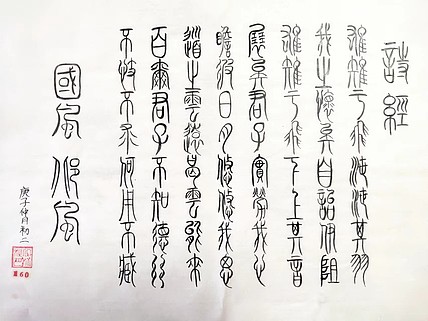 詩經
雄雉于飛泄泄其羽
我之懷矣自詒伊阻
雄雉于飛下上其音
展矣君子實勞我心
瞻彼日月悠悠我思
道之雲遠曷雲能來
百爾君子不知德行
不忮不求何用不臧
國風 邶風
庚子仲月初二